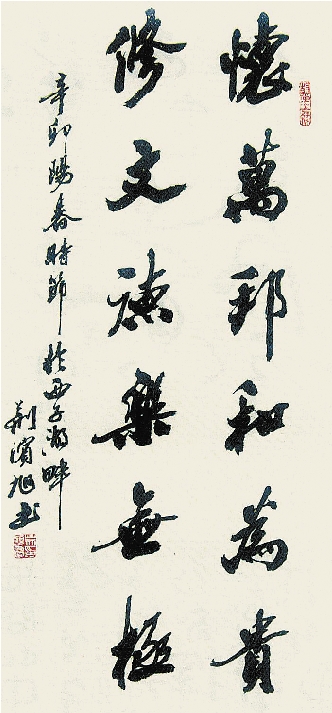 懷萬邦和為貴
修文德樂無極
辛卯陽春時節於西子湖畔
荆濱旭书